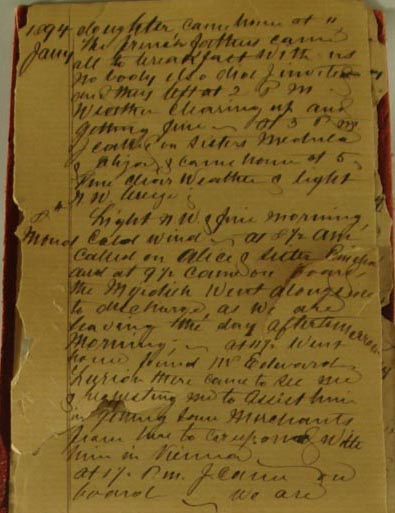 1894 daughter came home at 11
Jany The fathers came
all to breakfast with us
nobody else
and they left at 2 P M
Weather clearing up and
getting fine at 3 P M
I called on Sisters
& Eliza & came home at 5
fine clear Weather & light
N W breeze
8th Light N W & fine morning,
Mond Cold wind at 8½ AM
called on Alice & sister
and at 9½ came on board,
the Mejidieh went alongside
to discharge, as we are
leaving the day after tomorrow
morning; at 11½ went
home found Mr Edward
there came to see me
& requesting me to assist him
in some Merchants
from here to correspond with
him in Vienna
at 1½ P.m. I came on
board We are